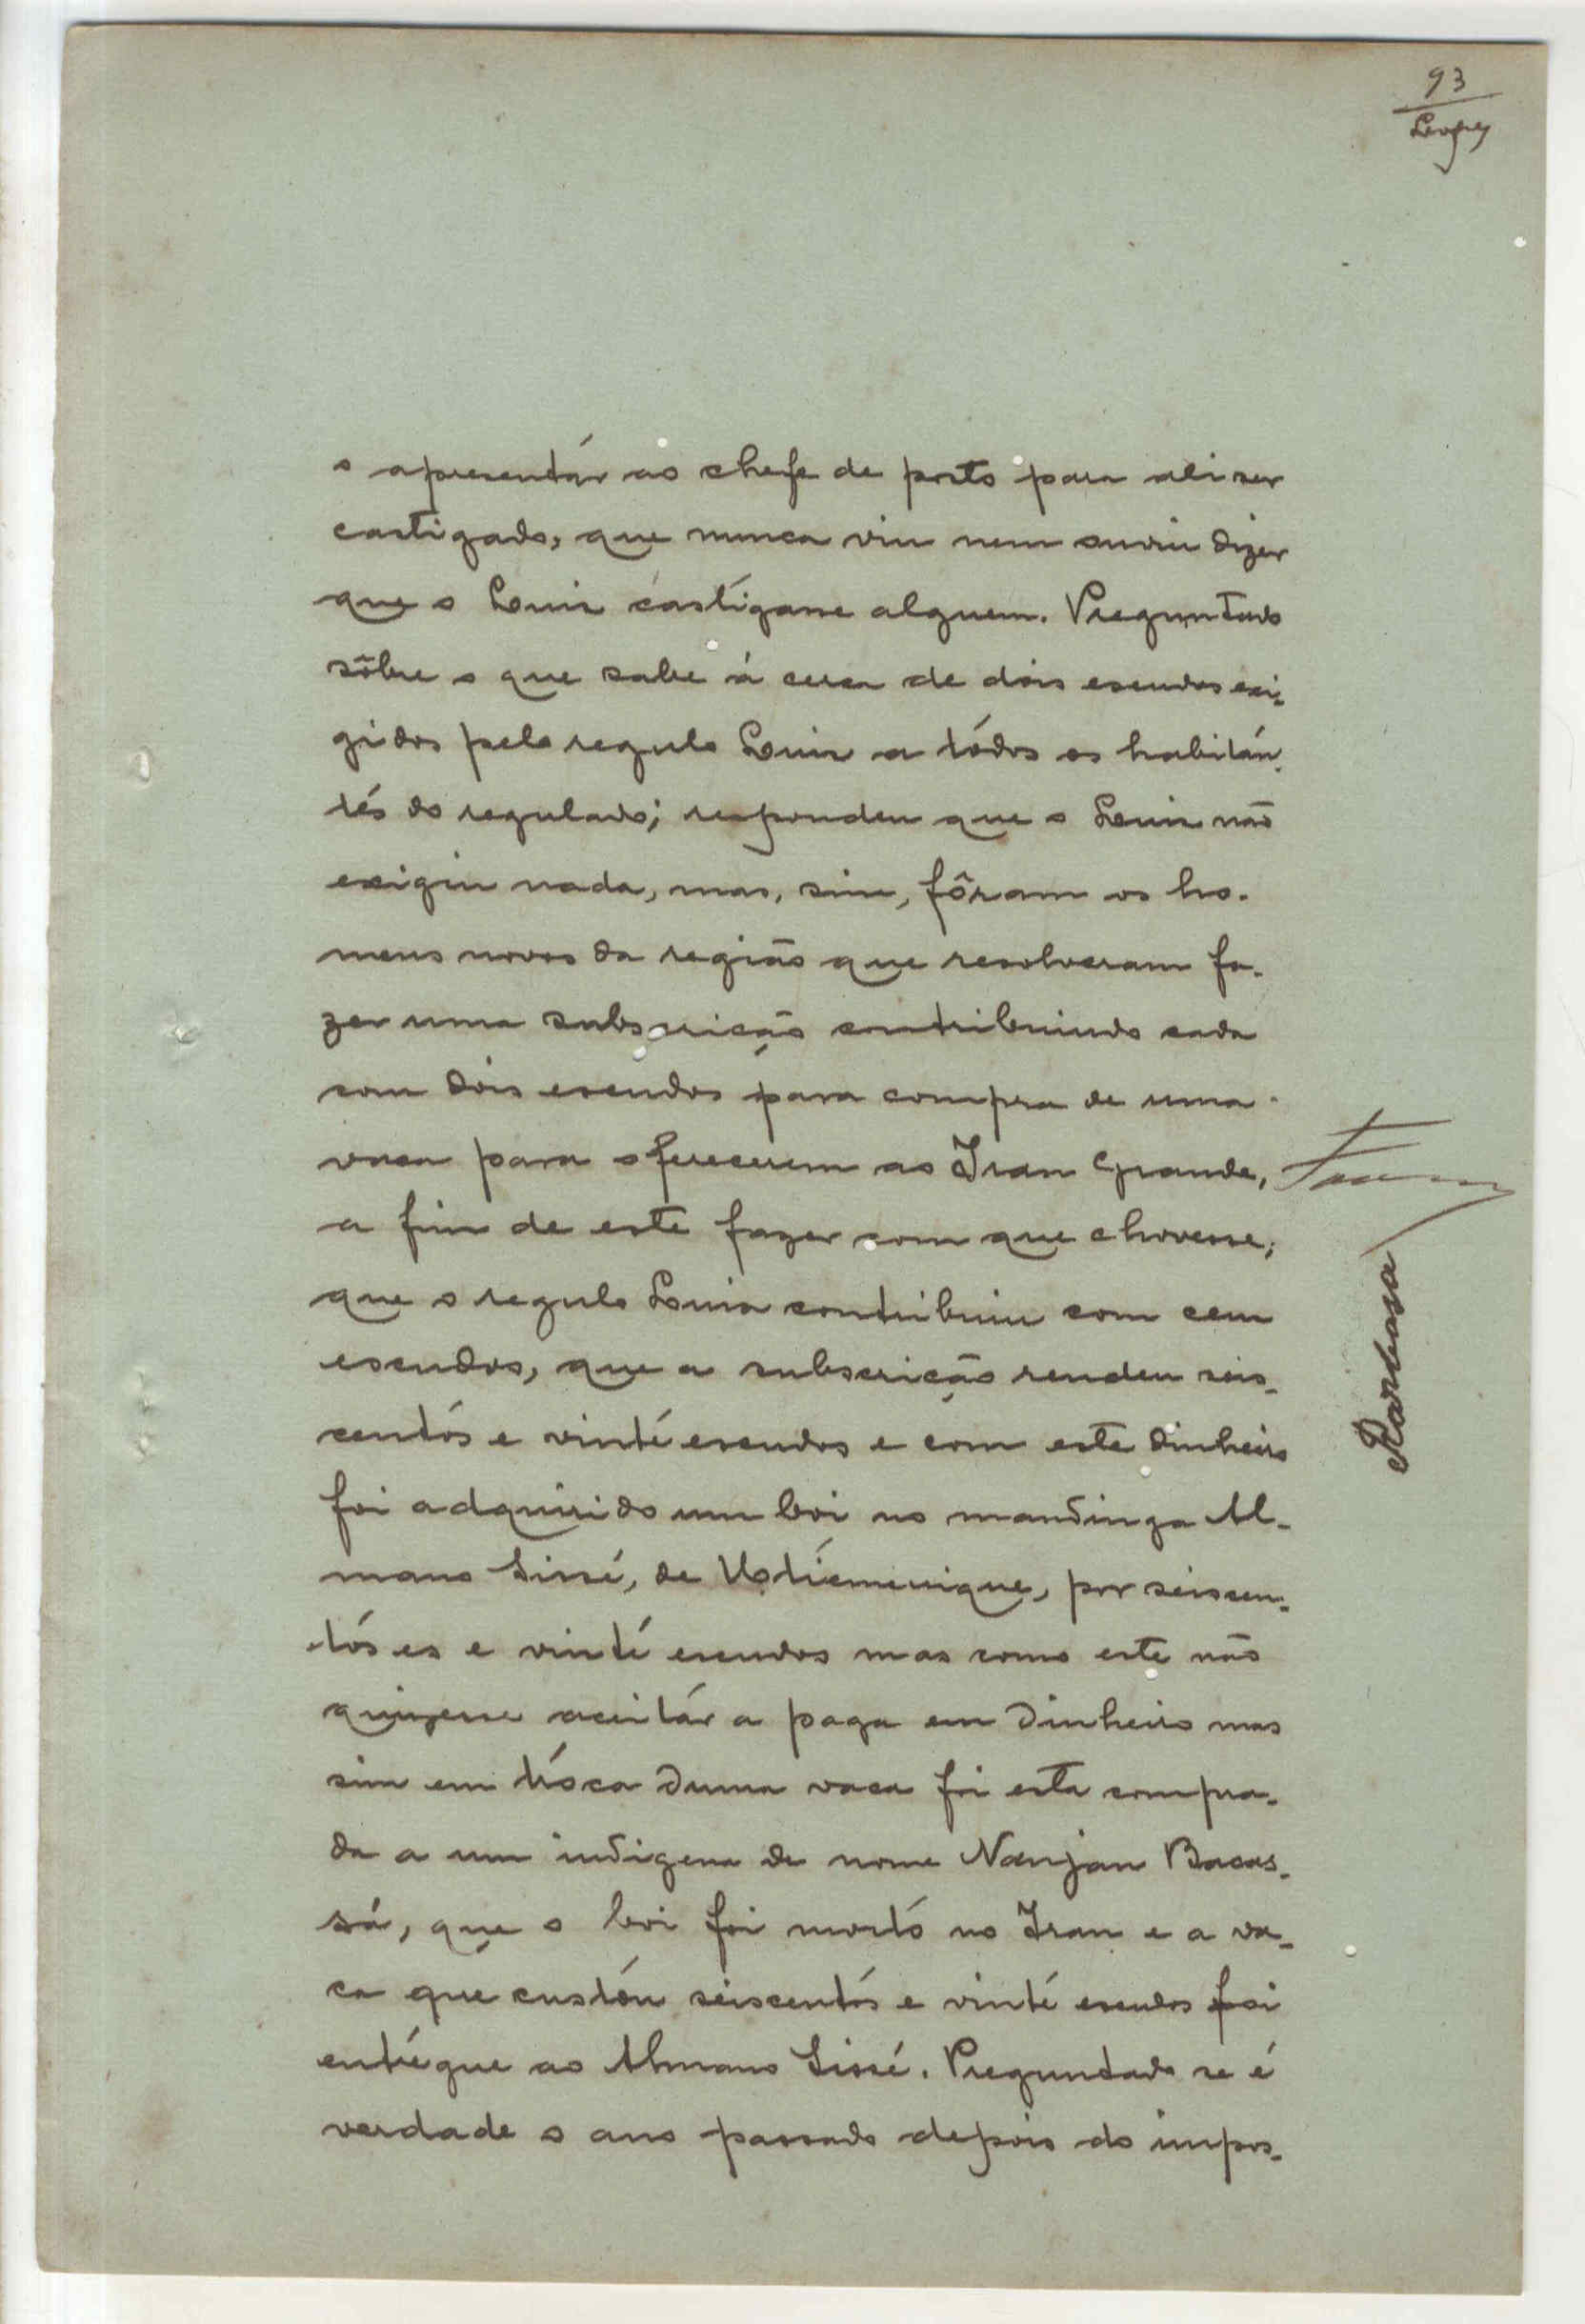 93
Lopes
o apresentár ao chefe de posto para ali ser
castigado, que nunca viu nem ouviu dizer
que o Luis cástigasse alguem. Preguntado
sôbre o que sabe á cerca de dois escudos exi-
gidos pelo regulo Luis a tódos os habitán-
tés do regulado; respondeu que o Luis não
exigiu nada, mas, sim, fôram os ho-
mens novos da região que resolveram fa-
zer uma subscrição contribuindo cada
com dois escudos para compra de uma
vaca para oferecerem ao Iran Grande,
a fim de este fazer com que chovesse;
que o regulo Luis contribuiu com cem
escudos, que a subscrição rendeu seis-
centós e vinté escudos e com este dinheiro
foi adquirido um boi no mandinga Al-
mano Sissé, de por seiscen-
tós es e vinté escudos mas como este não
quizesse aceitár a paga em dinheiro mas
sim em tróca duma vaca foi esta compra-
da a um indigena de nome Nanjan Bacas-
sá, que o boi foi mortó no Iran e a va-
ca que custóu seiscentós e vinté escudos foi
entrégue ao Almano Sissé. Preguntado se é
verdade o ano passado depois do impos-
Barbosa